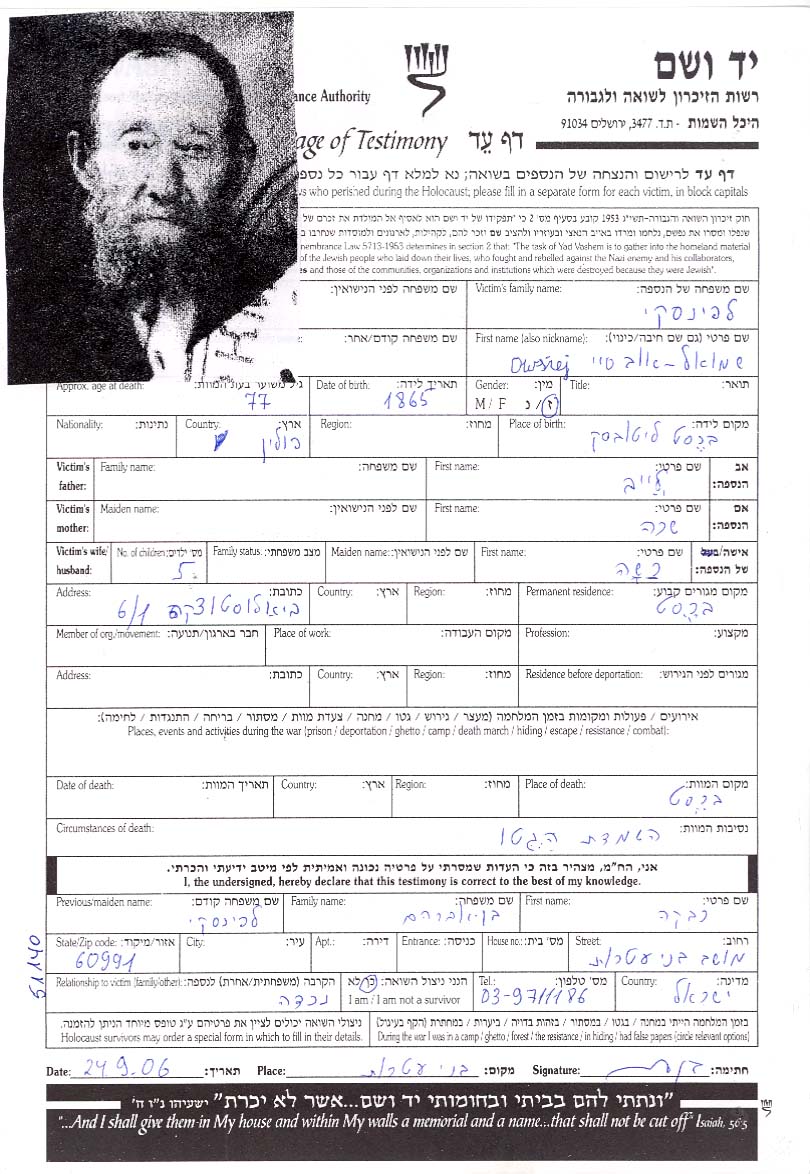 יד ושם
רשות הזיכרון לשואה ולגבורה
ance Authority
היכל השמות - ת.ד. 3477, ירושלים 91034
age of Testimony דף עֵד
דף עד לרישום והנצחה של הנספים בשואה; נא למלא דף עבור כל נספ
s who perished during the Holocaust; please fill in a separate form for each victim, in block capitals
חוק זיכרון השואה והגבורה-תשי״ג 1953 קובע בסעיף מס׳ 2 כי "תפקידו של יד ושם הוא לאסיף אל המולדת את זכרם של
שנפלו ומסרו את נפשם, נלחמו ומרדו באויב הנאצי ובעוזריו ולהציב שם וזכר להם, לקהילות, לארגונים ולמוסדות שנחרבו ב
membrance Law 5713-1953 determines in section 2 that: "The task of Yad Vashem is to gather into the homeland material
of the Jewish people who laid down their lives, who fought and rebelled against the Nazi enemy and his collaborators,
es and those of the communities, organizations and institutions which were destroyed because they were Jewish".
שם משפחה לפני הנישואין: Victim's family name: שם משפחה של הנספה:
לפינסקי
שם משפחה קודם/אחר: First name (also nickname): שם פרטי (גם שם חיבה/כינוי):
שמואל - אוב טיי Owsiej
Approx. age at death: גיל משוער בעת המוות: Date of birth: תאריך לידה: Gender: מין: Title: תואר:
77 1865 M / F ז / נ
Nationality: נתינות: Country: ארץ: Region: מחוז: Place of birth: מקום לידה:
פולין בְּרֶסט ליטובסק
Victim's father: Family name: שם משפחה: First name: שם פרטי: אב הנספה:
לייב
Victim's mother: Maiden name: שם לפני הנישואין: First name: שם פרטי: אם הנספה:
שרה
Victim's wife/ husband: No. of children: מס׳ ילדים: Family status: מצב משפחתי: Maiden name: שם לפני הנישואין: First name: שם פרטי: אישה/בעל של הנספה:
5
Address: כתובת: Country: ארץ: Region: מחוז: Permanent residence: מקום מגורים קבוע:
6/1 ברסט
Member of org./movement: חבר בארגון/תנועה: Place of work: מקום העבודה: Profession: מקצוע:
Address: כתובת: Country: ארץ: Region: מחוז: Residence before deportation: מגורים לפני הגירוש:
אירועים / פעולות ומקומות בזמן המלחמה (מעצר / גירוש / גטו / מחנה / צעדת מוות / מסתור / בריחה / התנגדות / לחימה):
Places, events and activities during the war (prison / deportation / ghetto / camp / death march / hiding / escape / resistance / combat):
Date of death: תאריך המוות: Country: ארץ: Region: מחוז: Place of death: מקום המוות:
ברסט
Circumstances of death: נסיבות המוות:
השמדת הגטו
אני, הח״מ, מצהיר בזה כי העדות שמסרתי על פרטיה נכונה ואמיתית לפי מיטב ידיעתי והכרתי.
I, the undersigned, hereby declare that this testimony is correct to the best of my knowledge.
Previous/maiden name: שם משפחה קודם: Family name: שם משפחה: First name: שם פרטי:
לפינסקי בן-אברהם רבקה
State/Zip code: אזור/מיקוד: City: עיר: Apt.: דירה: Entrance: כניסה: House no.: מס׳ בית: Street: רחוב:
60991 מושב בני עטרות
51140
Relationship to victim (family/other): הקרבה (משפחתית/אחרת) לנספה: הנני ניצול השואה: כן/לא Tel.: מס׳ טלפון: Country: מדינה:
נכדה I am / I am not a survivor 03-9711186 ישראל
ניצולי השואה יכולים לציין את פרטיהם ע״ג טופס מיוחד הניתן להזמנה. בזמן המלחמה הייתי במחנה / בגטו / במסתור / בזהות בדויה / ביערות / במחתרת (הקף בעיגול)
Holocaust survivors may order a special form in which to fill in their details. During the war I was in a camp / ghetto / forest / the resistance / in hiding / had false papers (circle relevant options)
Date: 24.9.06 תאריך: Place: בני עטרות מקום: Signature: חתימה:
"ונתתי להם בביתי ובחומותי יד ושם...אשר לא יכרת" ישעיהו נ״ו ה׳
"...And I shall give them in My house and within My walls a memorial and a name...that shall not be cut off" Isaiah, 56:5